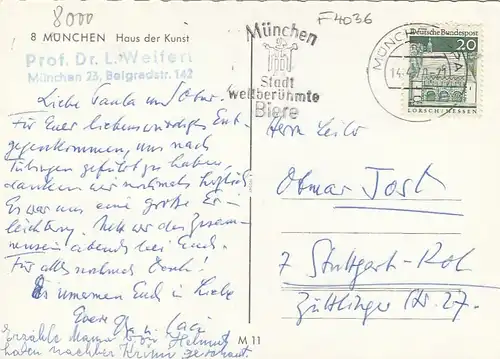 8000
F4036
8 MÜNCHEN Haus der Kunst
Prof. Dr. L. Weifert
München 23, Belgradstr. 142
München
Stadt
weltberühmte
Biere
MÜNCHEN
Deutsche Bundespost
20
LORSCH/HESSEN
Liebe Paula und Otmar!
Für Euer liebenswürdiges Ent-
gegenkommen, uns nach
Tübingen geführt zu haben,
danken wir nochmals herzlich
Es war uns eine große Er-
leichtung. Nett war das Zusam-
mensein abends bei Euch.
Für alles nochmals Dank!
Es umarmen Euch in Liebe
Eure
Erzähle Mama
haben nachher
Herrn
Otmar Jost
7 Stuttgart-
Str. 27.
M 11